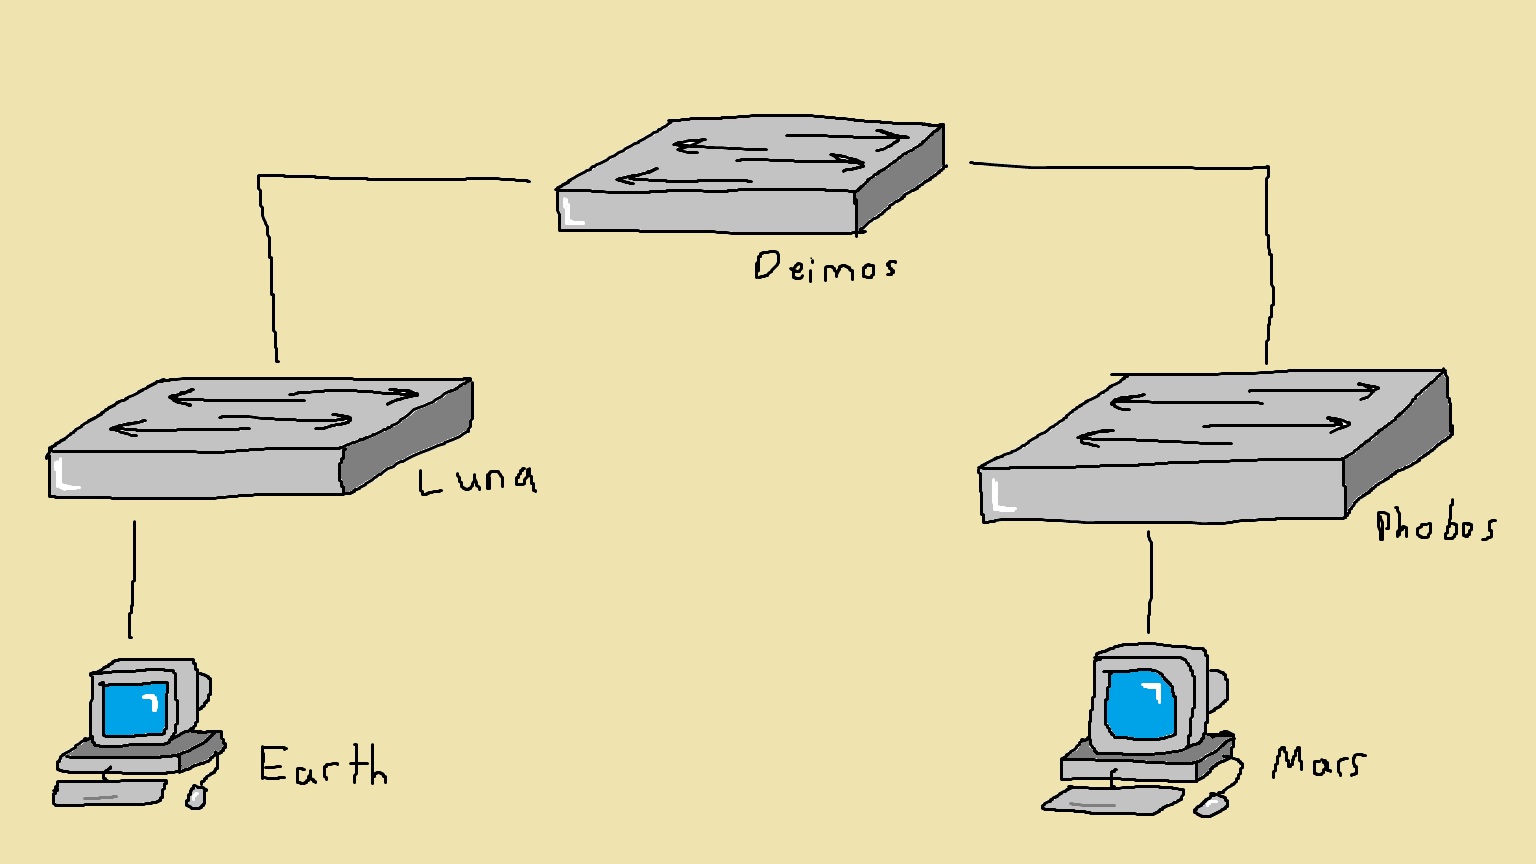 Deimos
Luna
Phobos
Earth
Mars